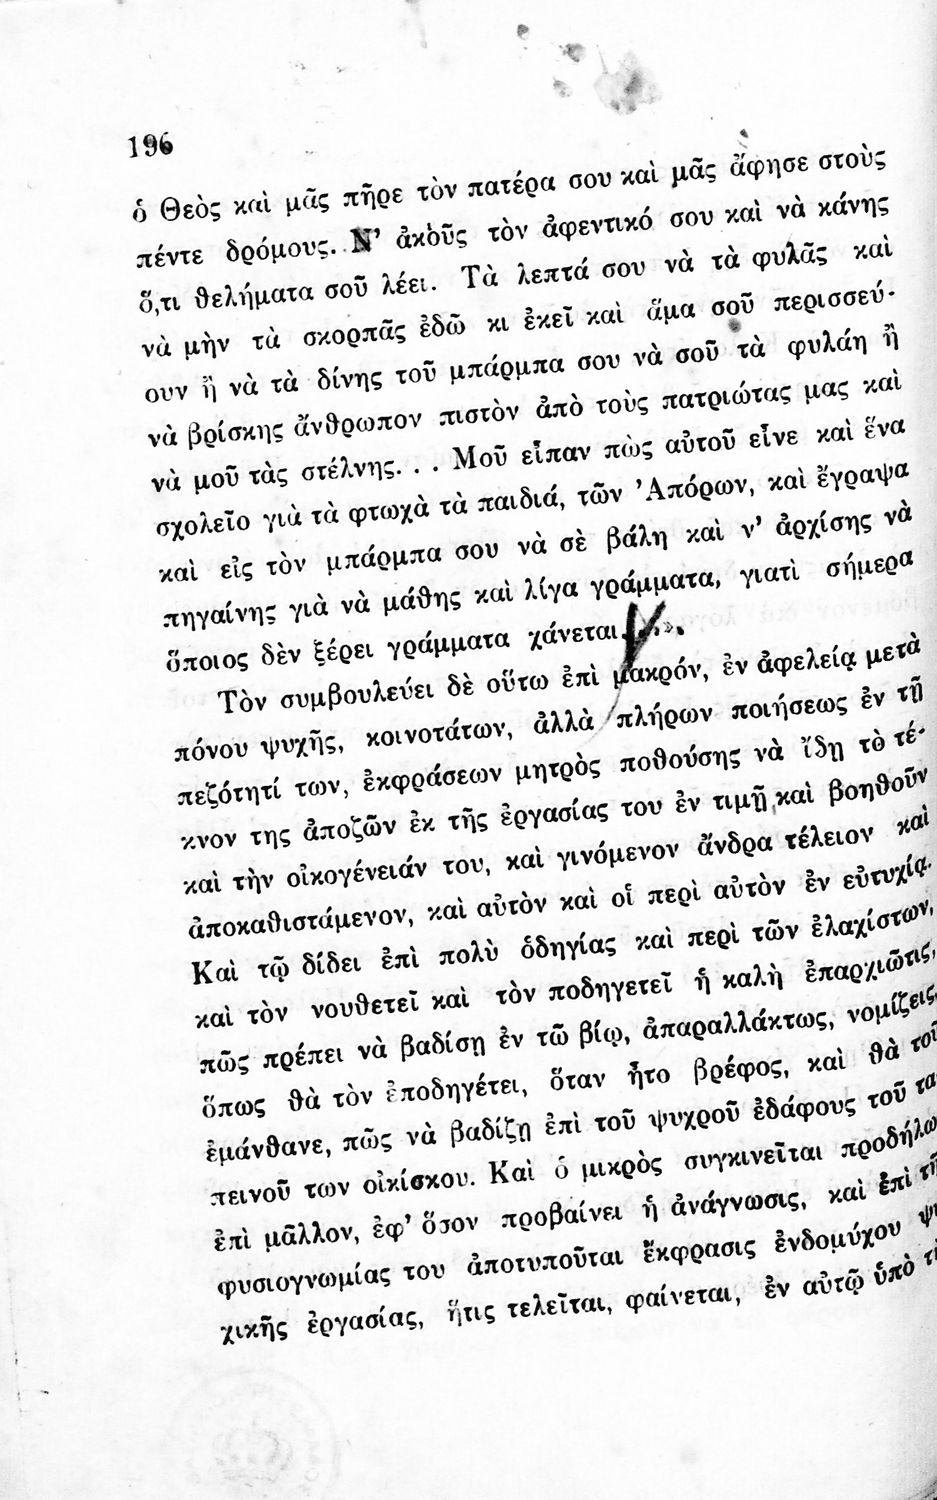 196
ὁ Θεὸς καὶ μᾶς πῆρε τὸν πατέρα σου καὶ μᾶς ἄφησε στοὺς
πέντε δρόμους. Ν' ἀκοῦς τὸν ἀφεντικό σου καὶ νὰ κάνης
ὅ,τι θελήματα σοῦ λέει. Τὰ λεπτά σου νὰ τὰ φυλᾶς καὶ
νὰ μὴν τὰ σκορπᾶς ἐδῶ κι ἐκεῖ καὶ ἅμα σοῦ περισσεύ-
ουν ἢ νὰ τὰ δίνης τοῦ μπάρμπα σου νὰ σοῦ τὰ φυλάη ἢ
νὰ βρίσκης ἄνθρωπον πιστὸν ἀπὸ τοὺς πατριώτας μας καὶ
νὰ μοῦ τὰς στέλνης. . . Μοῦ εἶπαν πὼς αὐτοῦ εἶνε καὶ ἕνα
σχολεῖο γιὰ τὰ φτωχὰ τὰ παιδιά, τῶν Ἀπόρων, καὶ ἔγραψα
καὶ εἰς τὸν μπάρμπα σου νὰ σὲ βάλη καὶ ν' ἀρχίσης νὰ
πηγαίνης γιὰ νὰ μάθης καὶ λίγα γράμματα, γιατὶ σήμερα
ὅποιος δὲν ξέρει γράμματα χάνεται. . .».
Τὸν συμβουλεύει δὲ οὕτω ἐπὶ μακρόν, ἐν ἀφελείᾳ μετὰ
πόνου ψυχῆς, κοινοτάτων, ἀλλὰ πλήρων ποιήσεως ἐν τῇ
πεζότητί των, ἐκφράσεων μητρὸς ποθούσης νὰ ἴδῃ τὸ τέ-
κνον της ἀποζῶν ἐκ τῆς ἐργασίας του ἐν τιμῇ καὶ βοηθοῦν
καὶ τὴν οἰκογένειάν του, καὶ γινόμενον ἄνδρα τέλειον καὶ
ἀποκαθιστάμενον, καὶ αὐτὸν καὶ οἱ περὶ αὐτὸν ἐν εὐτυχίᾳ.
Καὶ τῷ δίδει ἐπὶ πολὺ ὁδηγίας καὶ περὶ τῶν ἐλαχίστων,
καὶ τὸν νουθετεῖ καὶ τὸν ποδηγετεῖ ἡ καλὴ ἐπαρχιῶτις,
πῶς πρέπει νὰ βαδίσῃ ἐν τῶ βίῳ, ἀπαραλλάκτως, νομίζεις,
ὅπως θὰ τὸν ἐποδηγέτει, ὅταν ἦτο βρέφος, καὶ θὰ τοῦ
ἐμάνθανε, πῶς νὰ βαδίζῃ ἐπὶ τοῦ ψυχροῦ ἐδάφους τοῦ τα-
πεινοῦ των οἰκίσκου. Καὶ ὁ μικρὸς συγκινεῖται προδήλω
ἐπὶ μᾶλλον, ἐφ' ὅσον προβαίνει ἡ ἀνάγνωσις, καὶ ἐπὶ τῆ
φυσιογνωμίας του ἀποτυποῦται ἔκφρασις ἐνδομύχου ψυ
χικῆς ἐργασίας, ἥτις τελεῖται, φαίνεται, ἐν αὐτῷ ὑπὸ